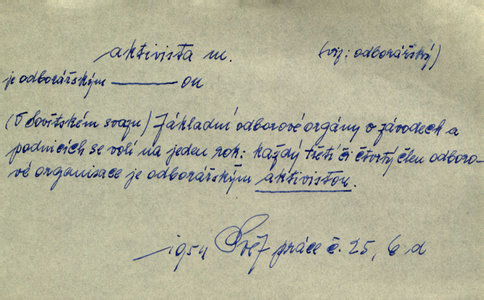 aktivista m. (viz: odborářský)
je odborářským ——— ou
(V Sovětském svazu) Základní odborové orgány v závodech a
podnicích se volí na jeden rok: každý třetí či čtvrtý člen odboro-
vé organisace je odborářským aktivistou.
1954 Svět práce č. 25, 6. d